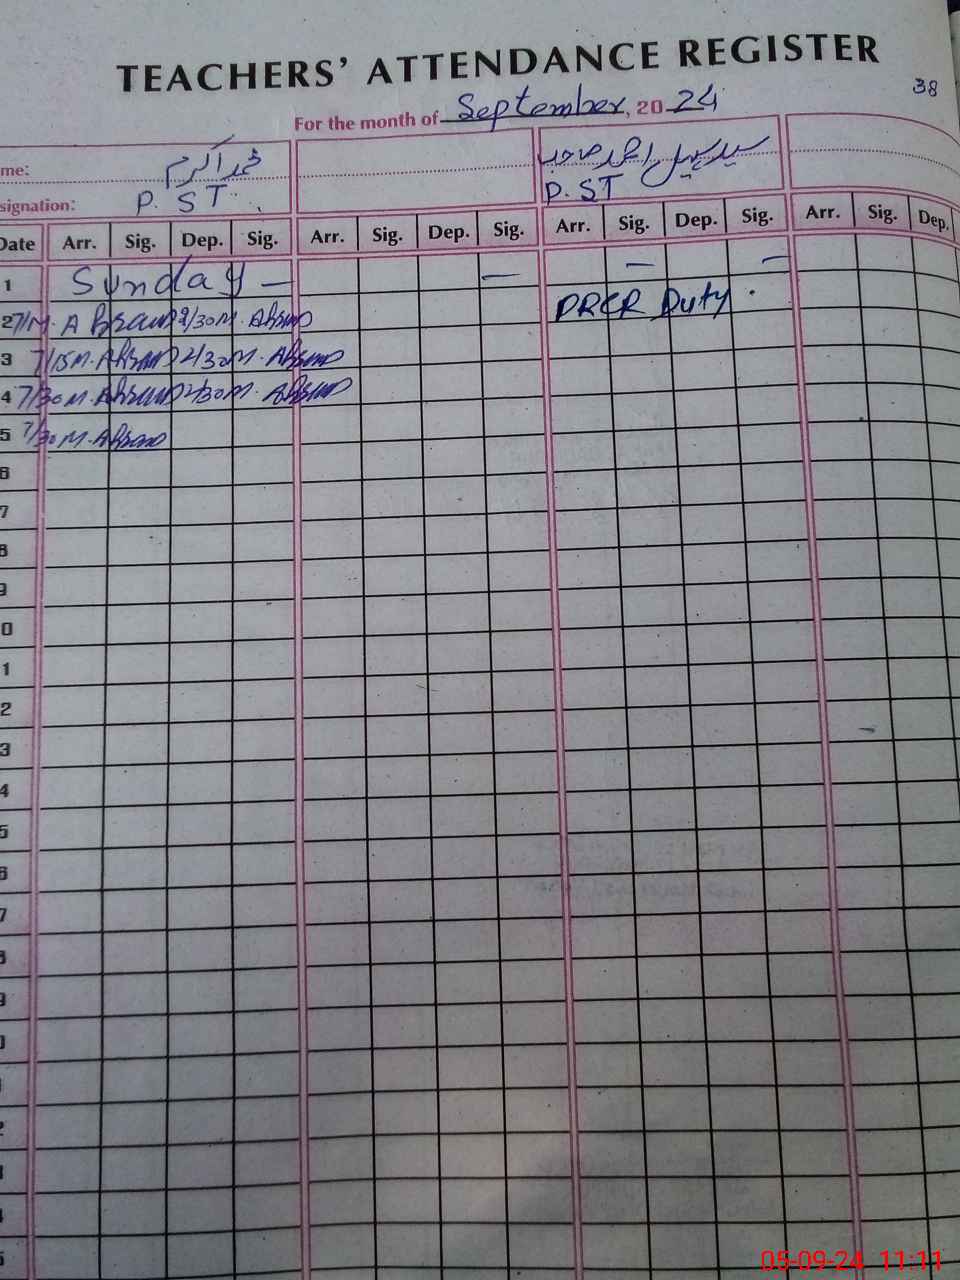 TEACHERS' ATTENDANCE REGISTER
38
For the month of September, 2024
me: محمد اکرم
signation: P. S T P. S T
Date Arr. Sig. Dep. Sig. Arr. Sig. Dep. Sig. Arr. Sig. Dep. Sig. Arr. Sig. Dep.
1 Sunday — — — —
2 7/M. 2/30M. Duty
3 7/15M. 2/30M.
4 7/30M. 2/30M.
5 7/30M.
6
7
8
9
0
1
2
3
4
5
6
7
8
9
0
1
2
3
4
5
05-09-24 11:11